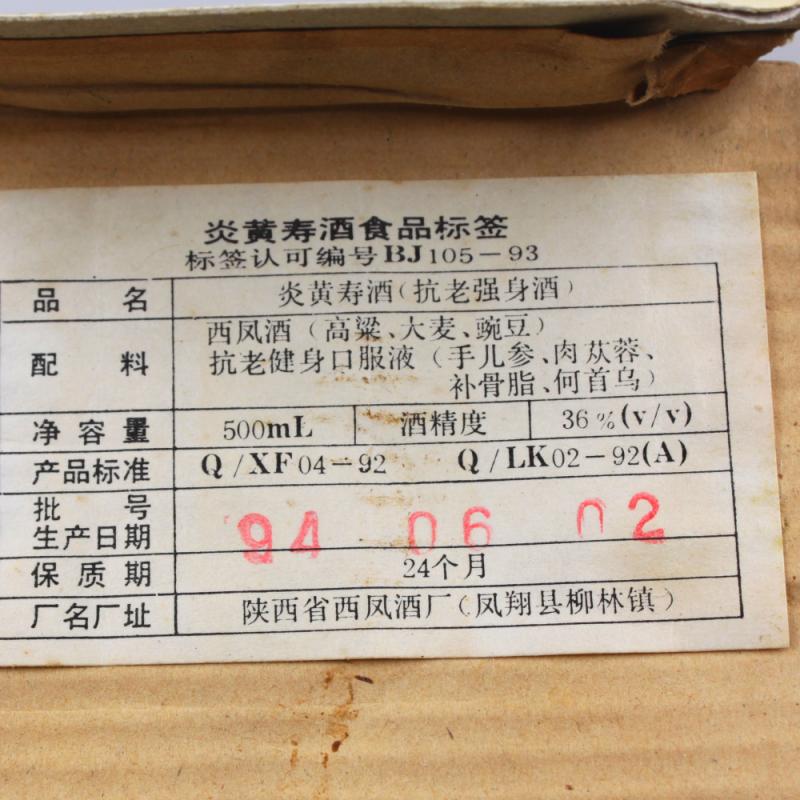 炎黄寿酒食品标签
标签认可编号BJ105-93
品 名 炎黄寿酒(抗老强身酒)
配 料 西凤酒(高粱、大麦、豌豆)
抗老健身口服液(手儿参、肉苁蓉、
补骨脂、何首乌)
净容量 500mL 酒精度 36%(v/v)
产品标准 Q/XF04-92 Q/LK02-92(A)
批 号
生产日期 94 06 02
保质期 24个月
厂名厂址 陕西省西凤酒厂(凤翔县柳林镇)